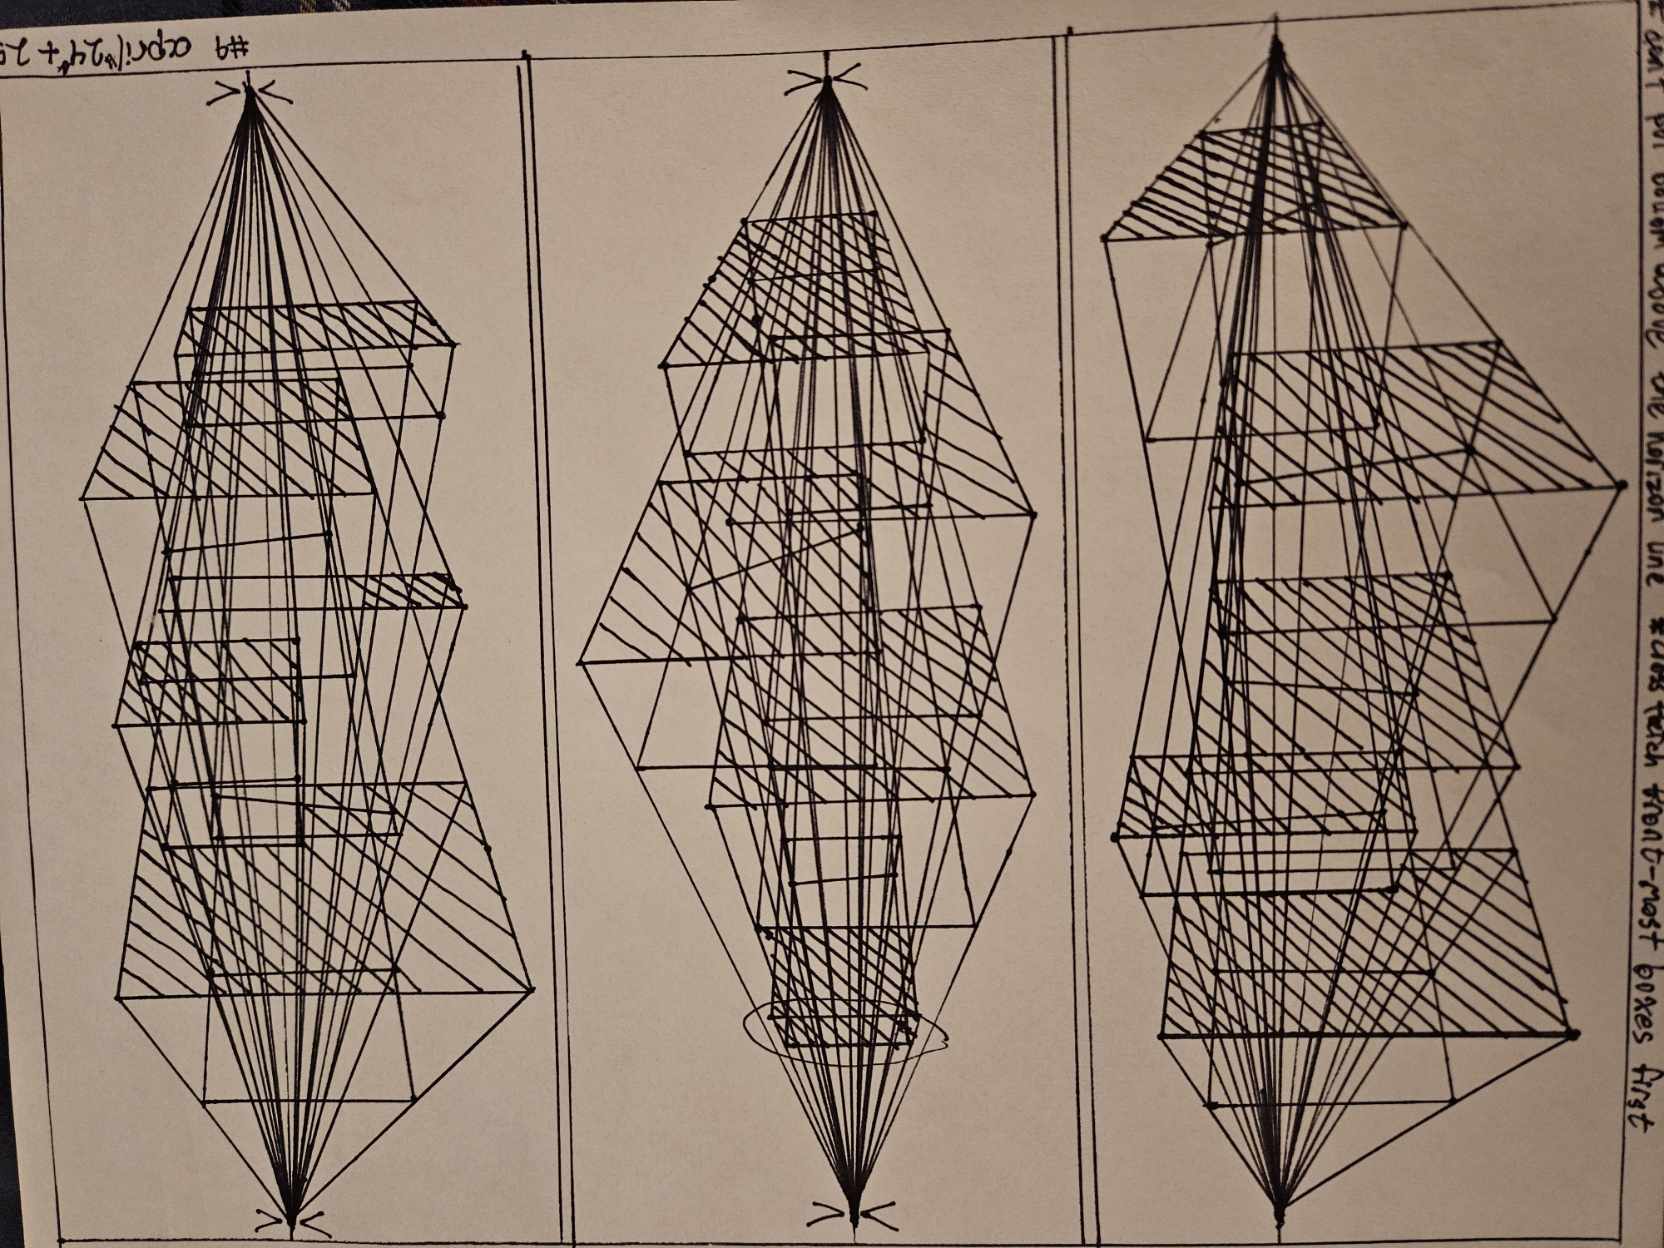 #4 april/24th + 2
don't put bottom above the horizon line # cross hatch front-most boxes first